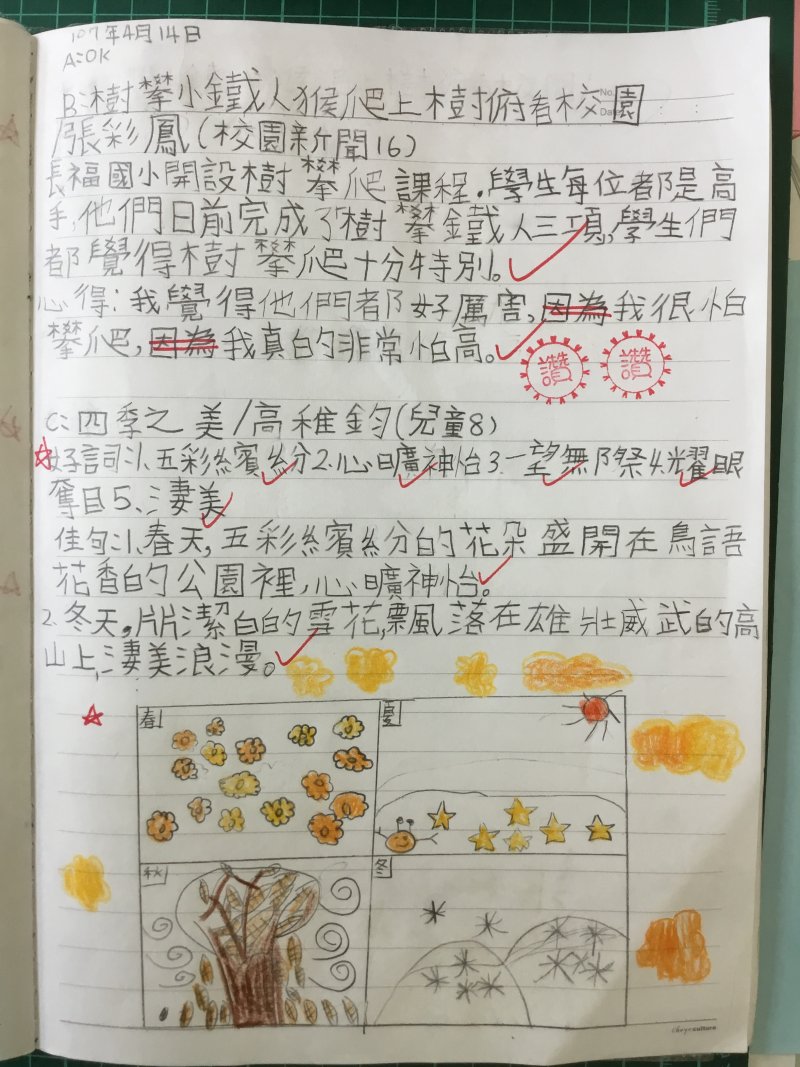 107年4月14日
A:OK
B:樹攀小鐵人猴爬上樹俯看校園
No.
Date
/張彩鳳(校園新聞16)
長福國小開設樹攀爬課程.學生每位都是高
手,他們日前完成了樹攀鐵人三項,學生們
都覺得樹攀爬十分特別。
心得:我覺得他們都好厲害,因為我很怕
攀爬,因為我真的非常怕高。
讚 讚
C:四季之美/高稚鈞(兒童8)
好詞:1.五彩繽紛2.心曠神怡3.一望無際4.耀眼
奪目5.淒美
佳句:1.春天,五彩繽紛的花朵盛開在鳥語
花香的公園裡,心曠神怡。
2.冬天,片片潔白的雪花,飄落在雄壯威武的高
山上,淒美浪漫。
春 夏
秋 冬